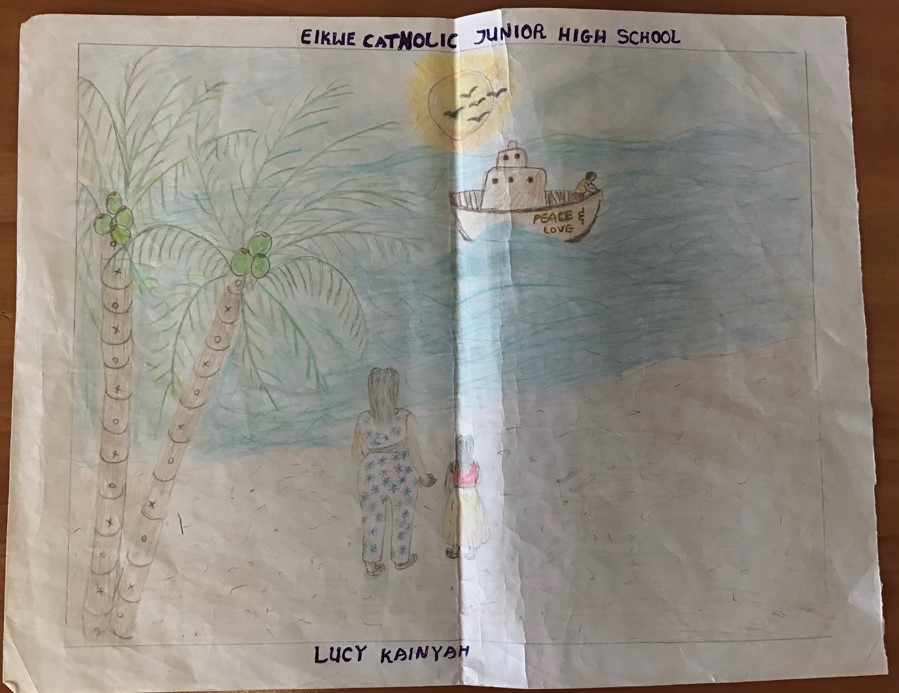 EIKWE CATHOLIC JUNIOR HIGH SCHOOL
PEACE &
LOVE
LUCY KAINYAH